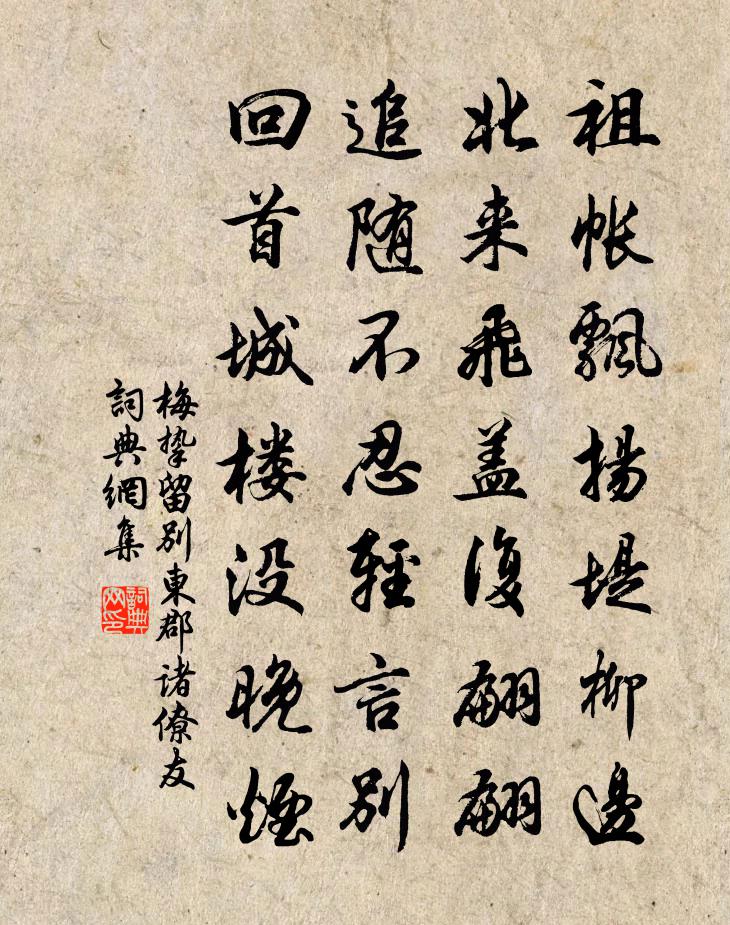 祖帐飘揚堤柳邊
北来飛盖復翩翩
追随不忍輕言别
回首城楼没晚煙
梅挚留别東郡诸僚友
詞典網集
詞典网印